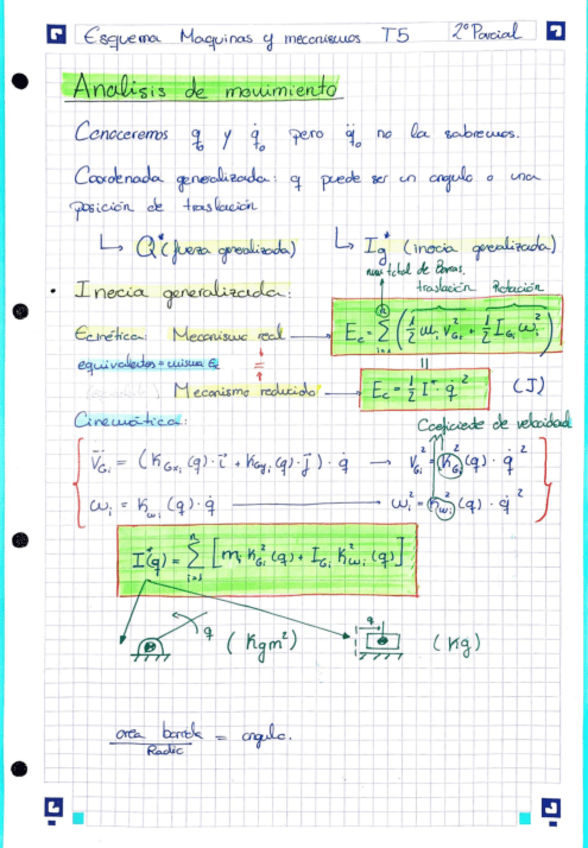 Esquema Maquinas y mecanismos T5 2º Parcial
Analisis de movimiento
Conoceremos q₀ y q̇₀ pero q̈₀ no la sabremos.
Coordenada generalizada: q puede ser un angulo o una
posición de traslación
↳ Q* (fuerza generalizada) ↳ Ig* (inercia generalizada)
num total de Barras.
traslación Rotación
· Inercia generalizada:
Ecinética: Mecanismo real → Ec = Σ(i=1..n) (½ mᵢ V_Gᵢ² + ½ I_Gᵢ ωᵢ²)
equivalentes = misma Ec = ||
Mecanismo reducido → Ec = ½ I* · q̇² (J)
Cinemática:
Coeficiente de velocidad
V̄_Gᵢ = (K_Gxᵢ (q) · i̅ + K_Gyᵢ (q) · j̅) · q̇ → V_Gᵢ² = K_Gᵢ² (q) · q̇²
ωᵢ = K_ωᵢ (q) · q̇ → ωᵢ² = K_ωᵢ² (q) · q̇²
I*(q) = Σ(i=1..n) [mᵢ K_Gᵢ² (q) + I_Gᵢ K_ωᵢ² (q)]
q (Kgm²) q (Kg)
area barrida / Radio = angulo.